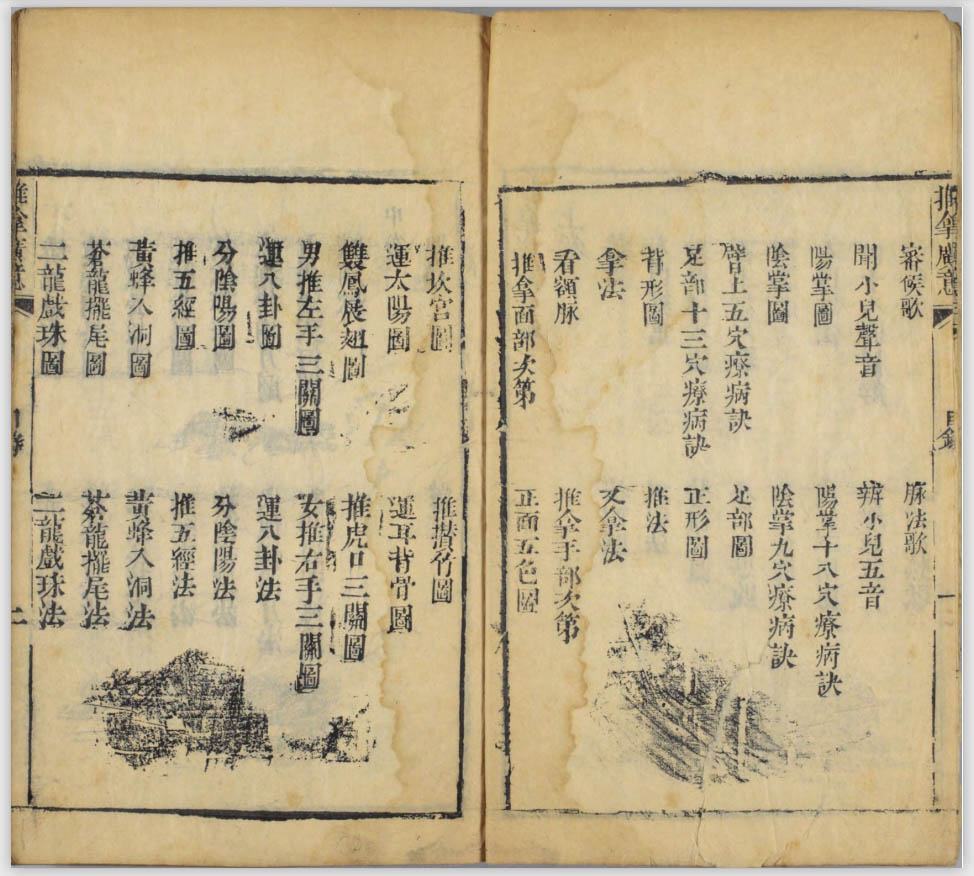 推拿廣意
目錄
一
審候歌
脉法歌
聞小兒聲音
辨小兒五音
陽掌圖
陽掌十八穴療病訣
陰掌圖
陰掌九穴療病訣
臂上五穴療病訣
足部圖
足部十三穴療病訣
正形圖
背形圖
推法
拿法
又拿法
看額脉
推拿手部次第
推拿面部次第
正面五色圖
推坎宮圖
推攢竹圖
運太陽圖
運耳背骨圖
雙鳳展翅圖
推虎口三關圖
男推左手三關圖
女推右手三關圖
運八卦圖
運八卦法
分陰陽圖
分陰陽法
推五經圖
推五經法
黃蜂入洞圖
黃蜂入洞法
蒼龍擺尾圖
蒼龍擺尾法
二龍戲珠圖
二龍戲珠法
推拿廣意
目錄
二